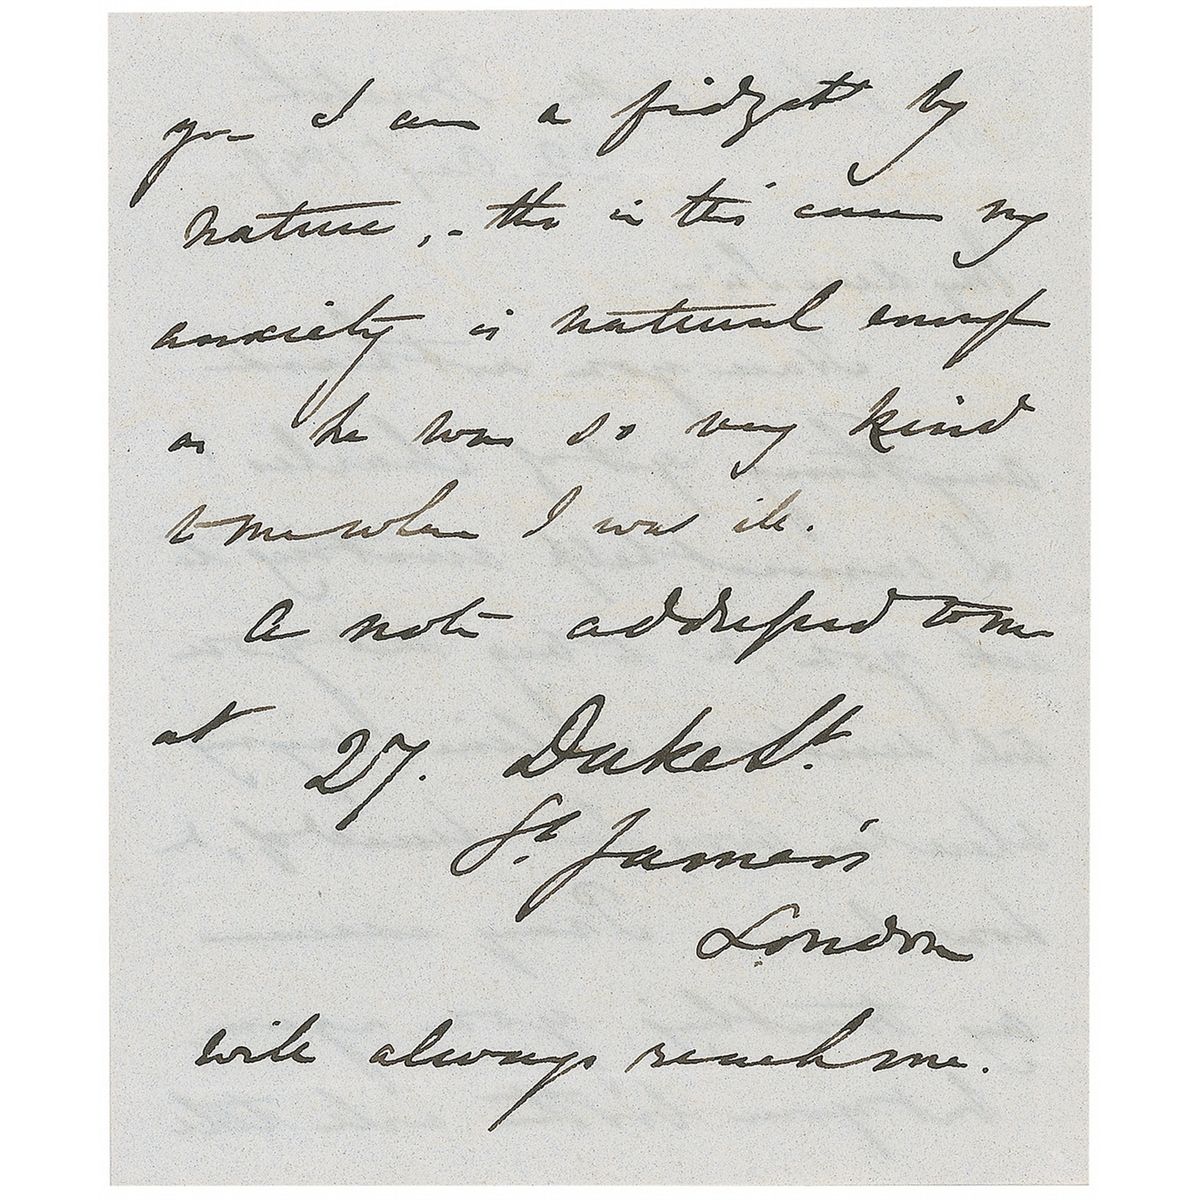 you I am a fidgett by
nature, - tho in this case my
anxiety is natural enough
as he was so very kind
to me when I was ill.
A note addressed to me
at 27. Duke St.
St. James's
London
will always reach me.